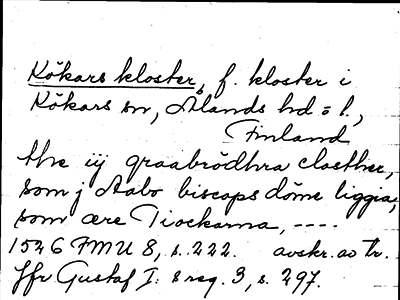 Kökars kloster, f. kloster i
Kökars sn, Ålands hd o l.,
Finland
the iij graabrödhra closther,
som j Aabo biscops döme liggia,
som ære Tiockarna, ----
1526 FMU 8, s. 222. avskr. av tr.
Jfr Gustaf I:s reg. 3, s. 297.